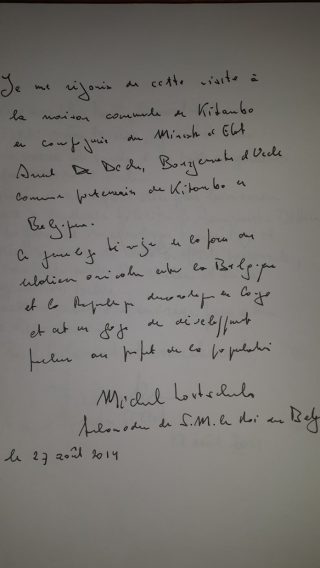 Je me réjouis de cette visite à
la maison communale de Kitambo
en compagnie du Ministre d'Etat
Armand De Decker, Bourgmestre d'Uccle
commune partenaire de Kitambo en
Belgique.
Ce jumelage témoigne de la force des
relations amicales entre la Belgique
et la République démocratique du Congo
et est un gage de développement
au profit de la population
Michel
Ambassadeur de S.M. le Roi des Belges
le 27 août 2014